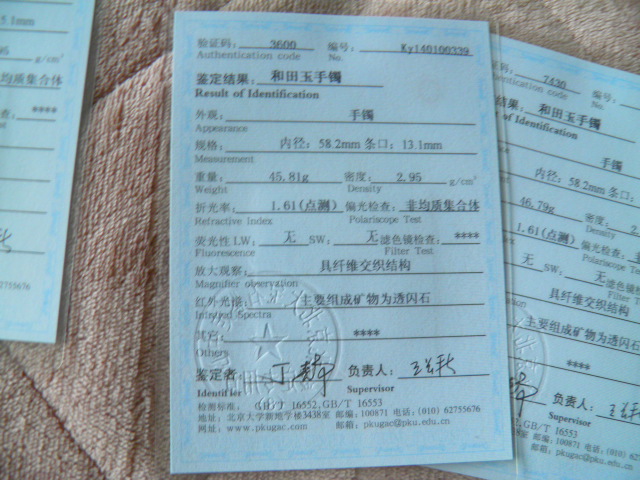 验证码: 3600 编号: Ky140100339
Authentication code No.
鉴定结果: 和田玉手镯
Result of Identification
外观: 手镯
Appearance
规格: 内径: 58.2mm 条口: 13.1mm
Measurement
重量: 45.81g 密度: 2.95 g/cm³
Weight Density
折光率: 1.61(点测) 偏光检查: 非均质集合体
Refractive Index Polariscope Test
荧光性 LW: 无 SW: 无 滤色镜检查: ****
Fluorescence Filter Test
放大观察: 具纤维交织结构
Magnifier observation
红外光谱: 主要组成矿物为透闪石
Infrared Spectra
其它: ****
Others
鉴定者: 负责人:
Identifier Supervisor
检测标准: GB/T 16552, GB/T 16553
地址: 北京大学新地学楼3438室 邮编: 100871 电话: (010) 62755676
网址: www.pkugac.com 邮箱: pkugac@pku.edu.cn
5.1mm
g/cm³
均质集合体
****
55676
证码: 7430 编号:
entication code No.
结果: 和田玉手镯
of Identification
手镯
内径: 58.2mm
46.79g 密度: 2.
Density
1.61(点测) 偏光检查:
Polariscope
无 SW: 无
具纤维交织结构
主要组成矿物为透闪石
****
负责人:
Supervisor
16553
邮编: 100871 电话: (010)
邮箱: pkugac@pku.edu